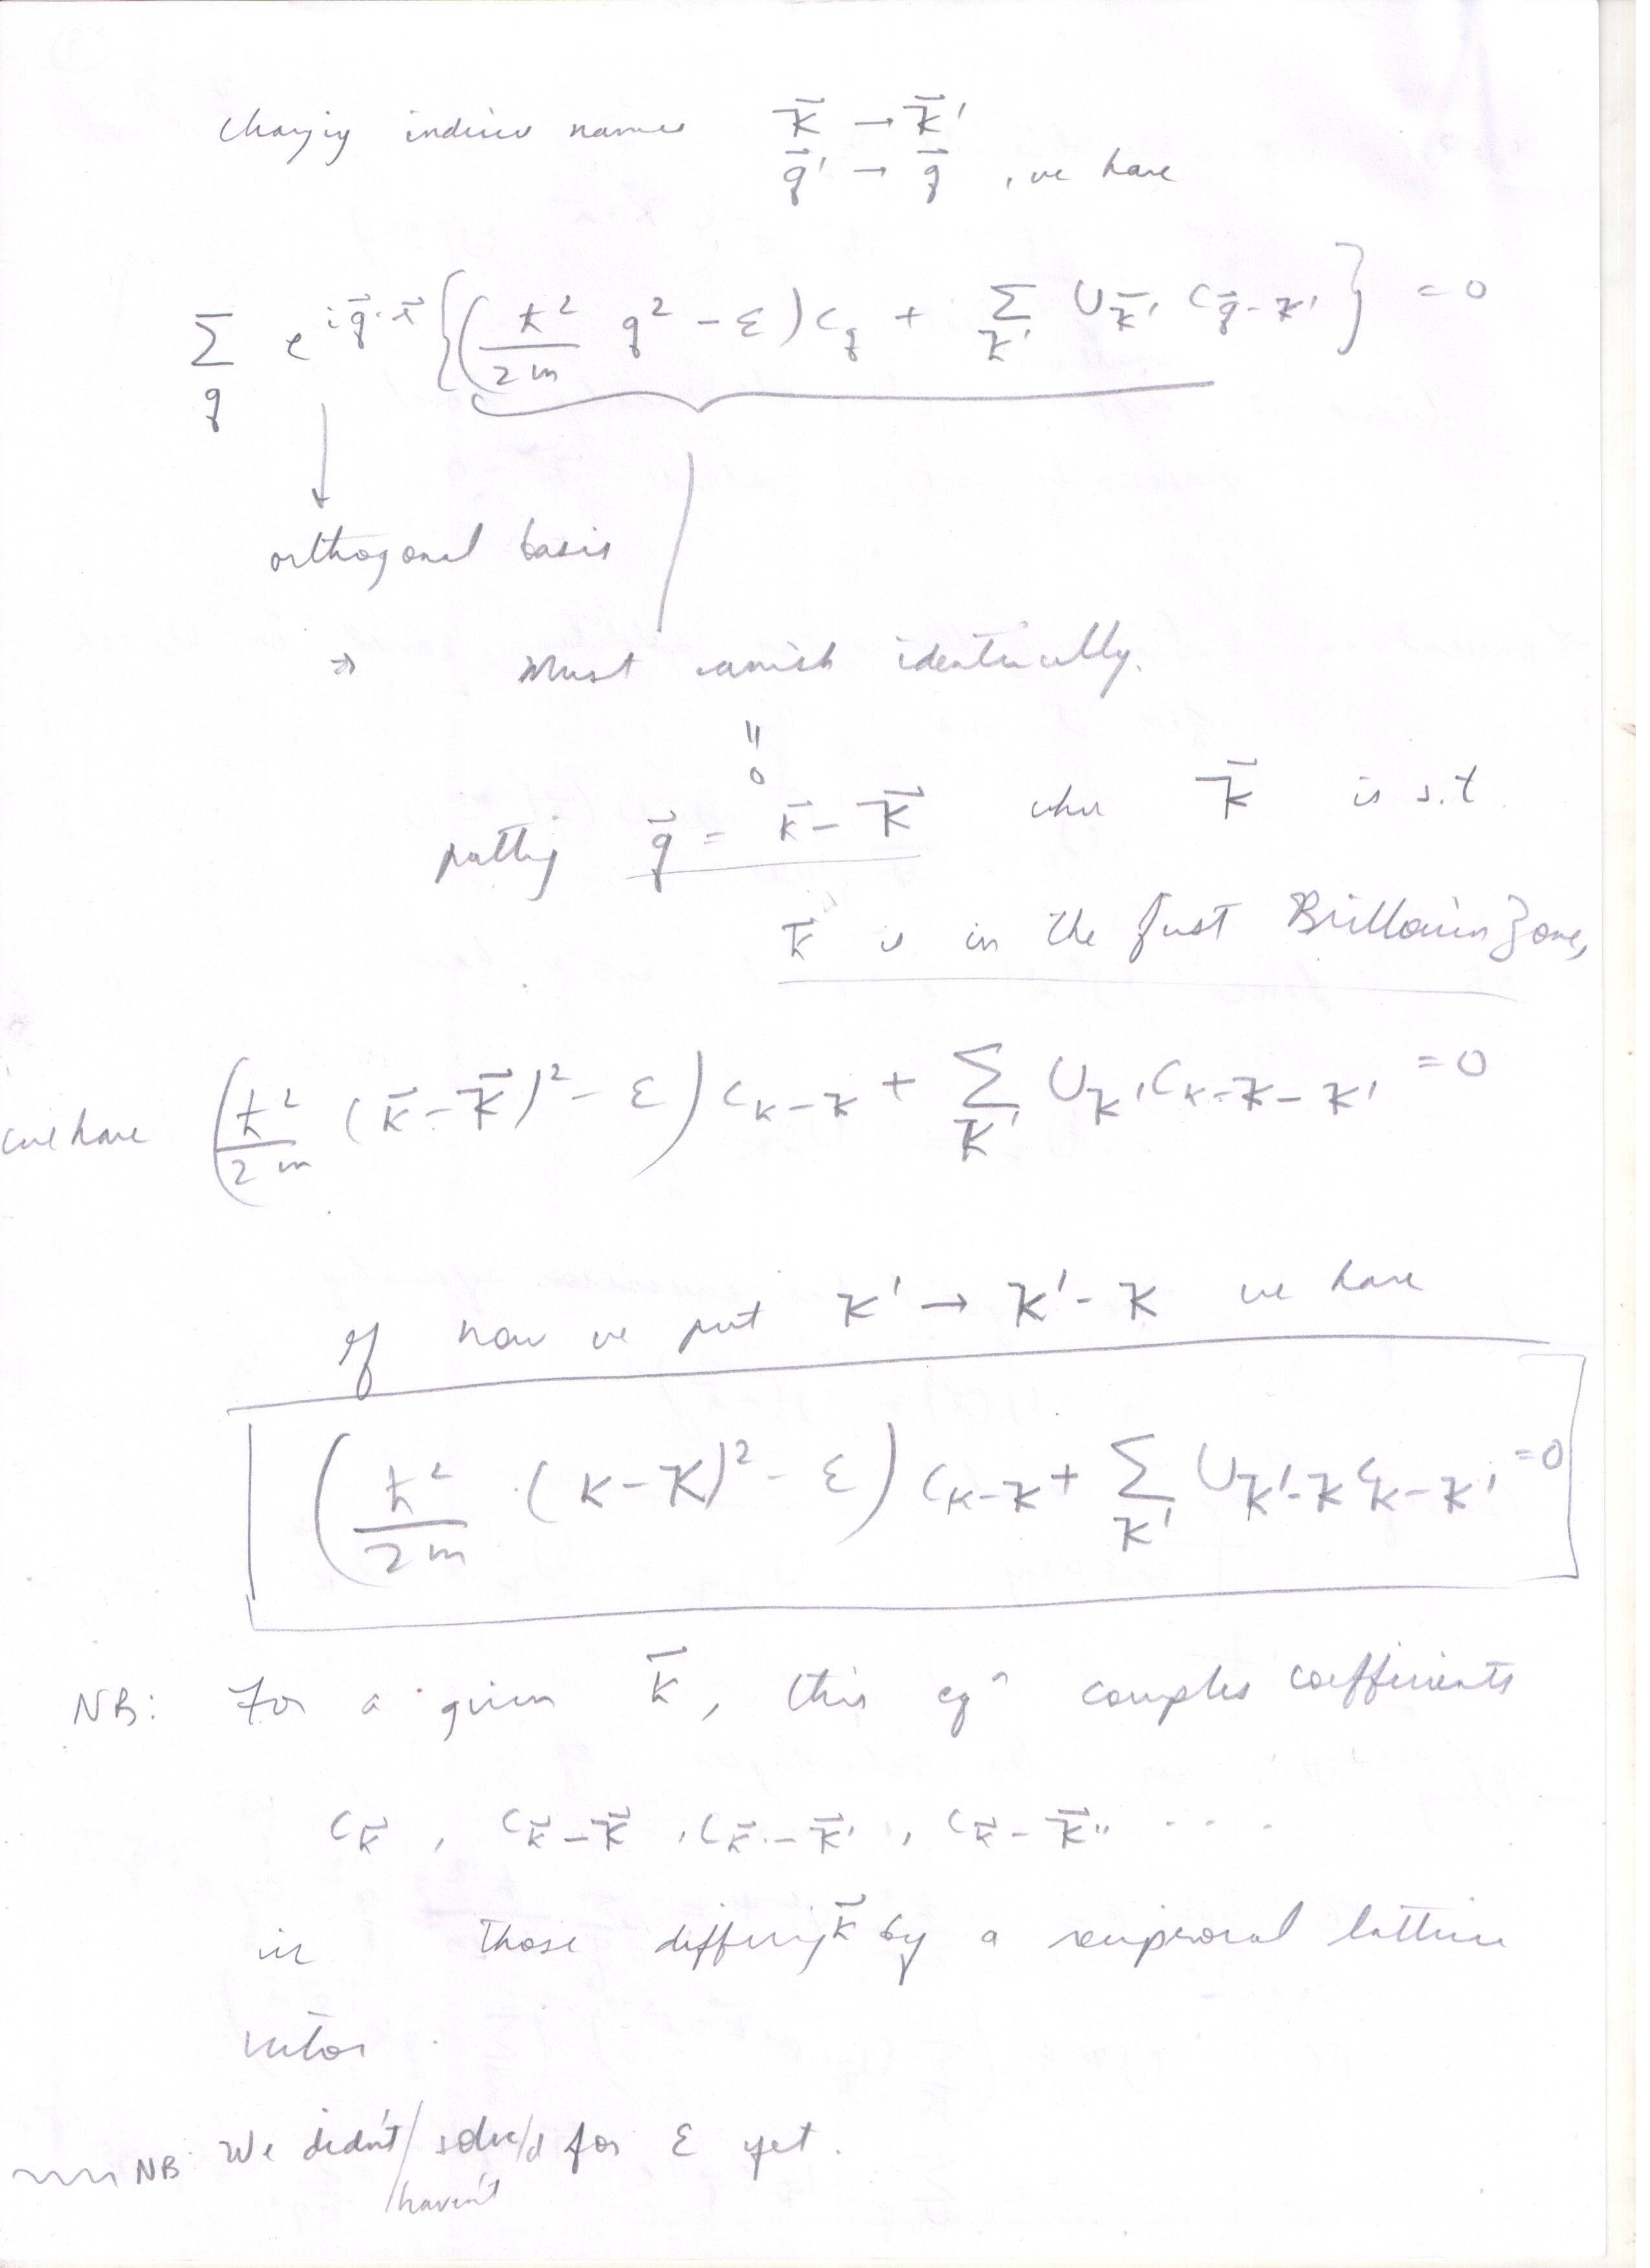 Changing indices names K⃗ → K⃗'
q⃗' → q⃗ , we have
Σ_q e^{i q⃗·r⃗} { ( ħ²/2m q² - ε ) c_q + Σ_{K'} U_{K⃗'} c_{q⃗-K'} } = 0
orthogonal basis
⇒ Must vanish identically.
" 0
putting q⃗ = k⃗ - K⃗ where K⃗ is s.t
k⃗ is in the first Brillouin Zone,
we have ( ħ²/2m (k⃗ - K⃗)² - ε ) c_{k-K} + Σ_{K'} U_{K'} c_{k-K-K'} = 0
If now we put K' → K' - K we have
( ħ²/2m (k - K)² - ε ) c_{k-K} + Σ_{K'} U_{K'-K} c_{k-K'} = 0
NB: For a given k⃗, this eqⁿ couples coefficients
c_{k⃗} , c_{k⃗-K⃗} , c_{k⃗-K⃗'} , c_{k⃗-K⃗''} ....
ie those differing k⃗ by a reciprocal lattice
vector.
NB: We didn't / solve/d for ε yet.
/haven't